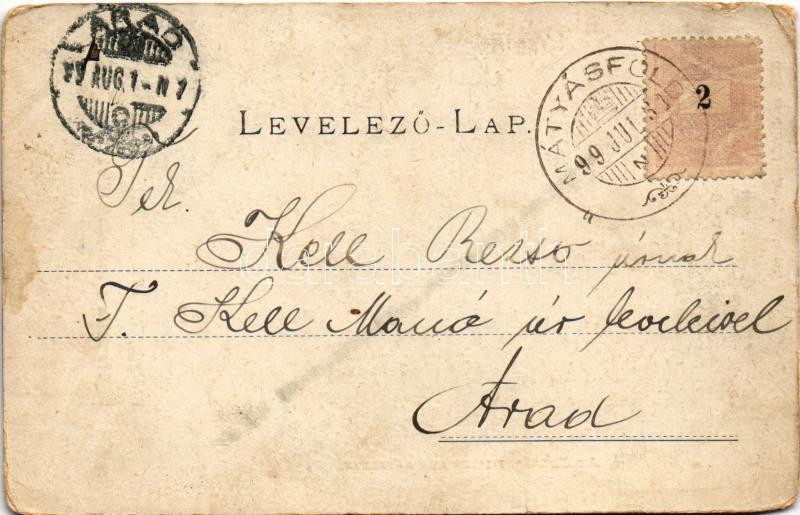 ARAD
99 AUG. 1 - N 7
MÁTYÁSFÖLD
99 JUL 31
N
2
LEVELEZŐ-LAP.
Kell Rezső úrnak
T. Kell Manó úr levelével
Arad
darabanth